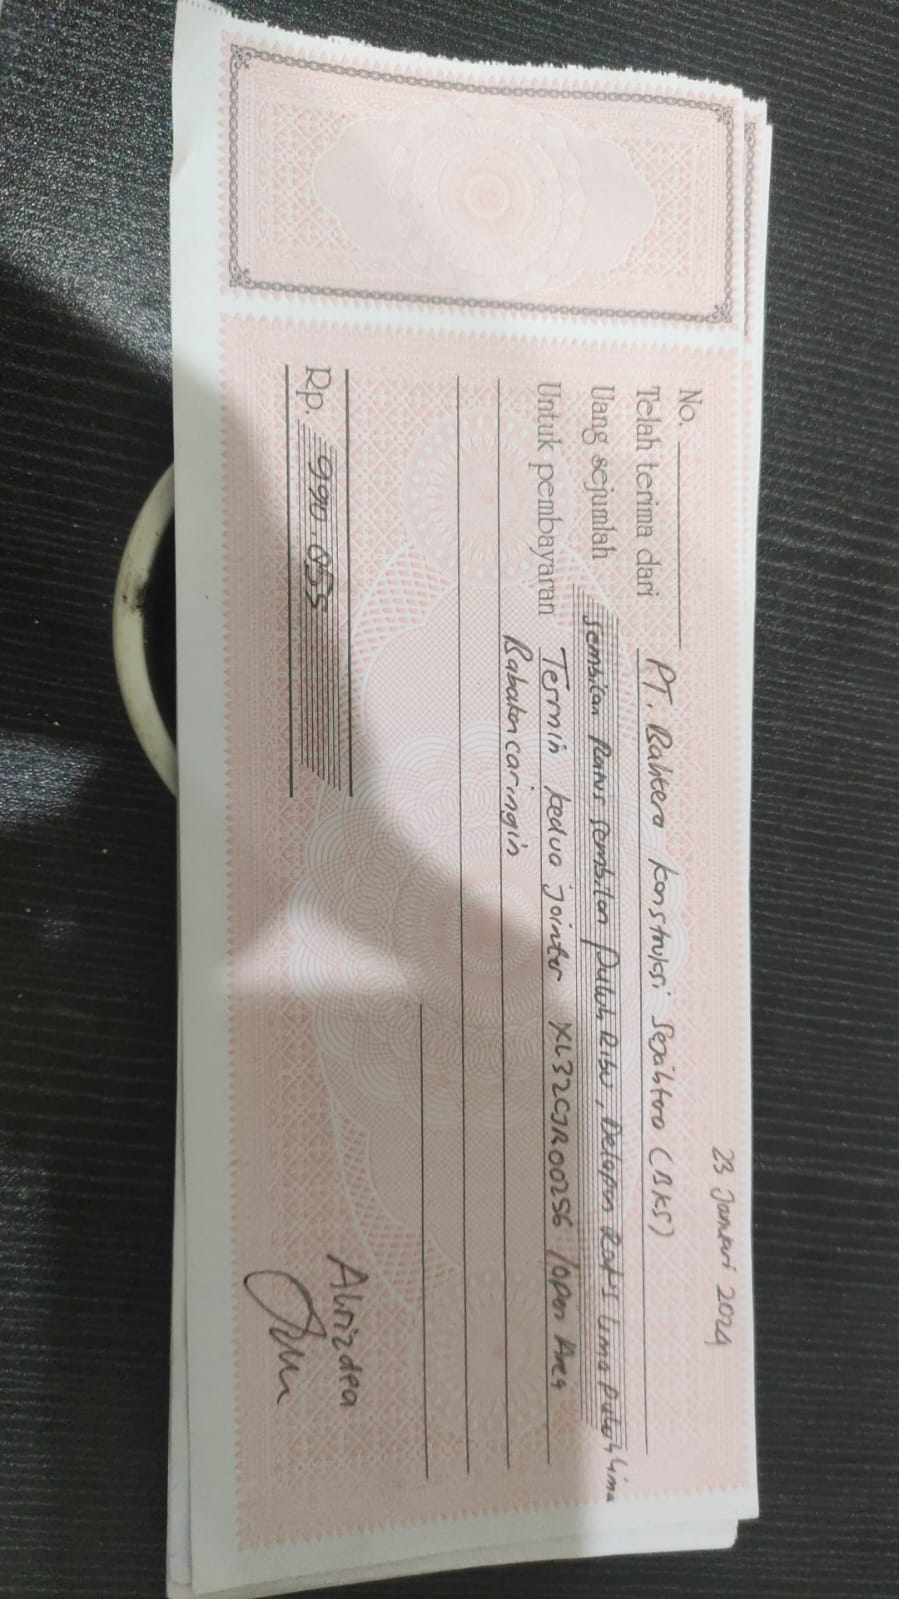 23 Januari 2024
No.
Telah terima dari PT. Bahtera konstruksi Sejahtera (BKS)
Uang sejumlah Sembilan Ratus Sembilan Puluh Ribu, Delapan Ratus Lima Puluh Lima
Untuk pembayaran Termin kedua Jointer XL32CJR00256 / Open Area
Babakan caringin
Rp. 990.855
Alrizdea